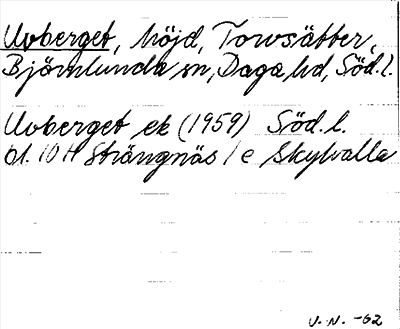 Uvberget, höjd, Torvsätter,
Björnlunda sn, Daga hd, Söd.l.
Uvberget ek (1959) Söd.l.
bl. 10 H Strängnäs / e Skylvalla
U.N. -62